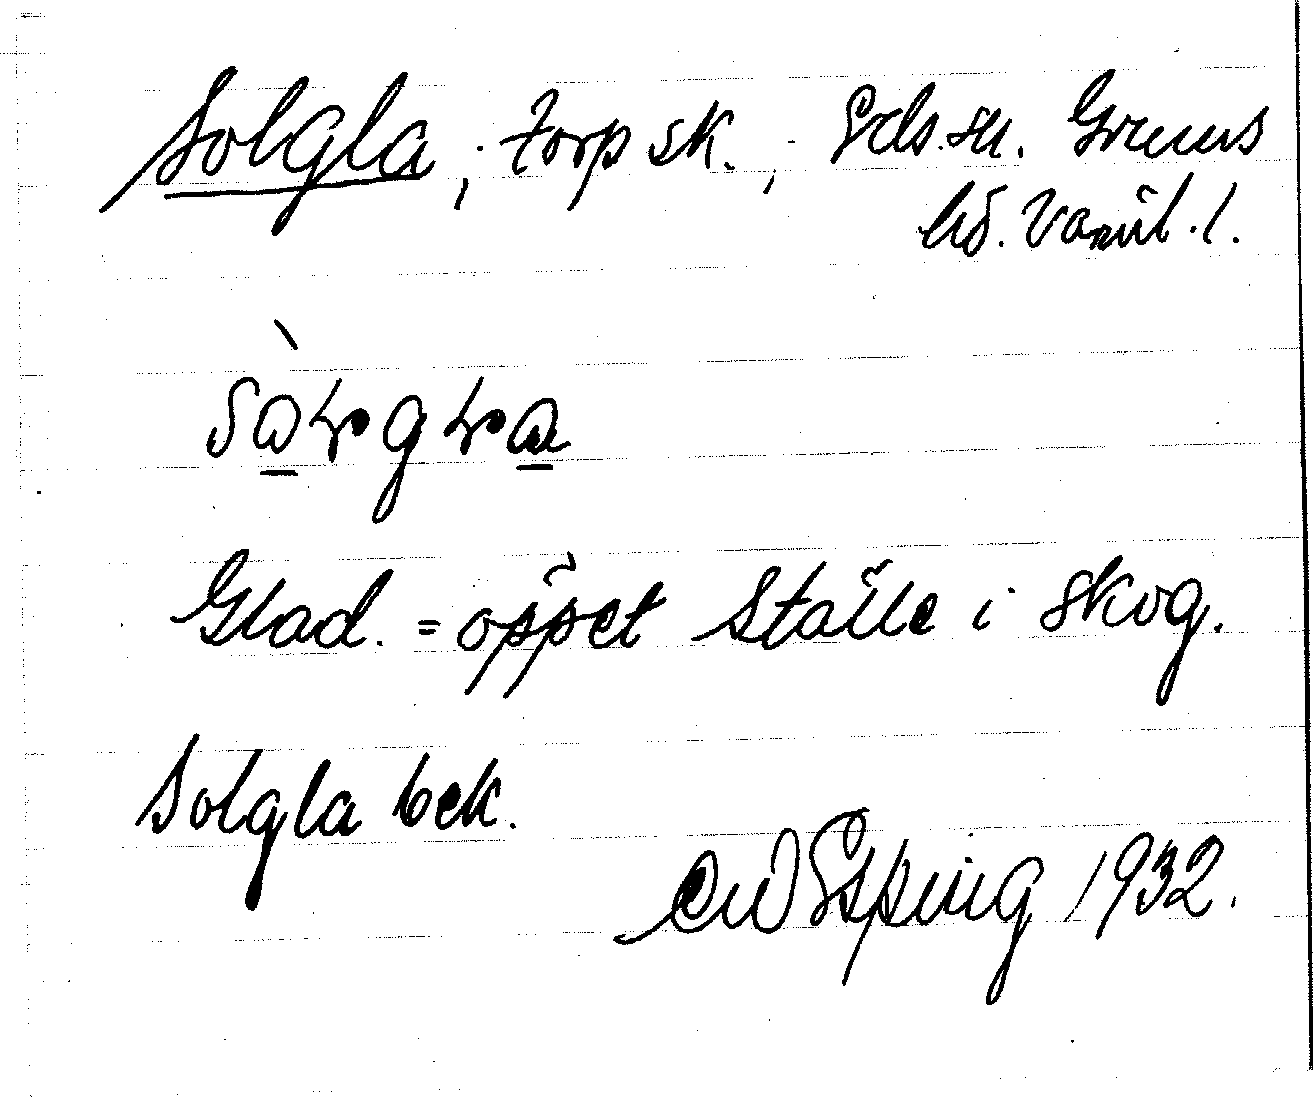 Solgla, torp sk., Eds. sn. Grums
hd. Värml. l.
Glad. = öppet ställe i skog.
Solgla bek.
Esping 1932.